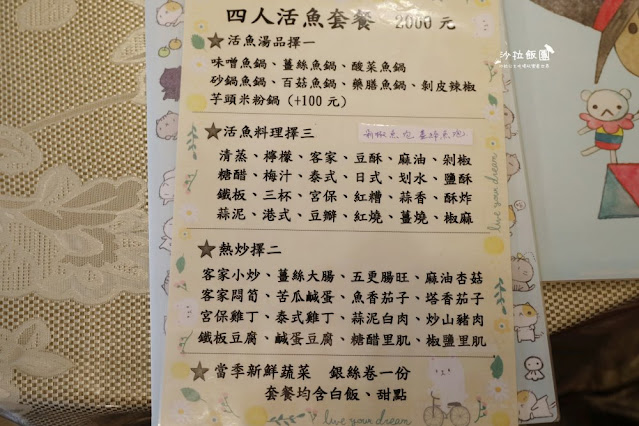 四人活魚套餐 2000 元
★活魚湯品擇一
味噌魚鍋、薑絲魚鍋、酸菜魚鍋
砂鍋魚鍋、百菇魚鍋、藥膳魚鍋、剝皮辣椒
芋頭米粉鍋(+100元)
★活魚料理擇三
清蒸、檸檬、客家、豆酥、麻油、剁椒
糖醋、梅汁、泰式、日式、划水、鹽酥
鐵板、三杯、宮保、紅糟、蒜香、酥炸
蒜泥、港式、豆瓣、紅燒、薑燒、椒麻
live your dream
★熱炒擇二
客家小炒、薑絲大腸、五更腸旺、麻油杏菇
客家悶筍、苦瓜鹹蛋、魚香茄子、塔香茄子
宮保雞丁、泰式雞丁、蒜泥白肉、炒山豬肉
鐵板豆腐、鹹蛋豆腐、糖醋里肌、椒鹽里肌
★當季新鮮蔬菜 銀絲卷一份
套餐均含白飯、甜點
live your dream
沙拉飯團